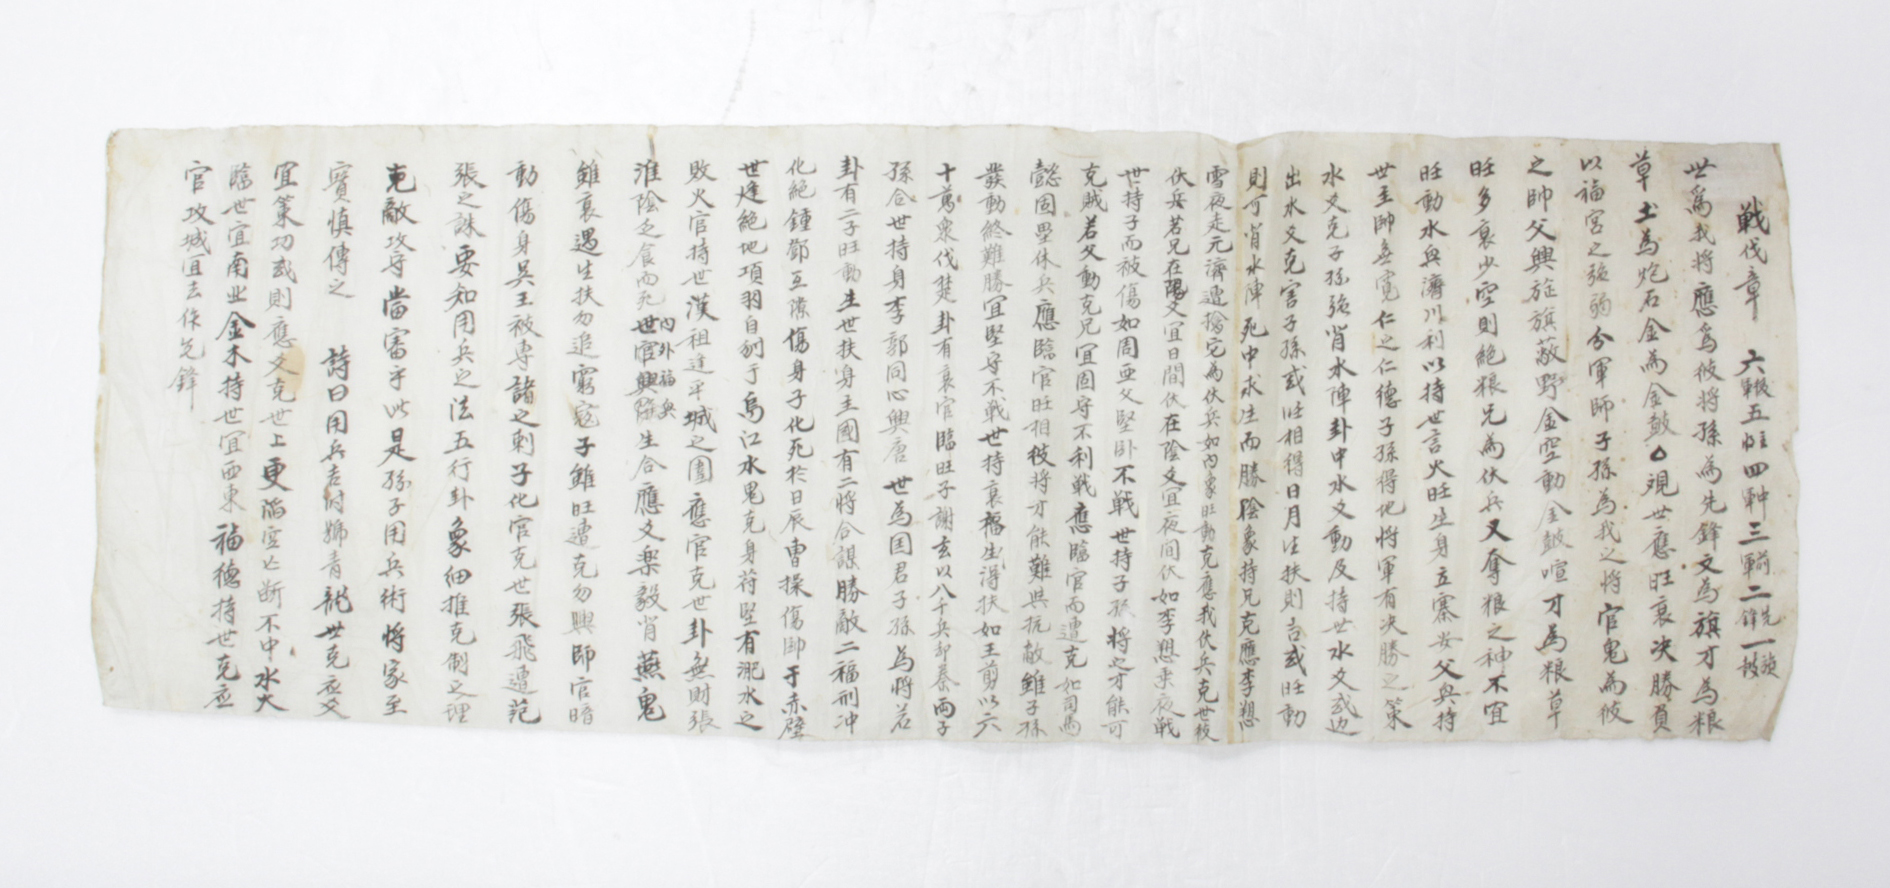 戦伐章 六軍後五䧺四軍中三軍前二先鋒一前
世為我将應為彼将孫為先鋒父為旗才為粮
草土為炮石金為金鼓○視世應旺衰决勝負
以福官之強弱分軍師子孫為我之将官鬼為彼
之帥父興旌旗蔽野金空動金鼓喧才為粮草
旺多衰少空則絶粮兄為伏兵又奪粮之神不宜
旺動水興濟川利以持世言火旺生身立寨安父與持
世主帥無寛仁之仁德子孫得地将軍有决勝之策
水父克子孫強背水陣卦中水父動及持世水父或迎
出水父克害子孫或旺相得日月生扶則吉或旺動
則可背水陣死中求生而勝陰象持兄克應李愬
雪夜走元濟遭擒兄為伏兵如内象旺動克應我伏兵克世彼
伏兵若兄在陽爻宜日間伏在陰爻宜夜間伏如李愬乗夜戦
世持子而被傷如周亞父堅卧不戦世持子孫将之才能可
克賊若父動克兄宜固守不利戦應臨官而遭克如司馬
懿固壘休兵應臨官旺相彼将才能難與抗敵雖子孫
發動終難勝宜堅守不戦世持衰福生得扶如王剪以六
十萬衆伐楚卦有衰官臨旺子謝玄以八千兵却秦兩子
孫合世持身李郭同心興唐世為国君子孫為将若
卦有二子旺動生世扶身主國有二将合謀勝敵二福刑冲
化絶鍾鄧互líng傷身子化死於日辰曺操傷師于赤壁
世逢絶地項羽自刎于烏江水鬼克身苻堅有淝水之
敗火官持世漢祖逢平城之圍應官克世卦無財張
淮陰之食而死世官興隆内外福兵生合應父樂毅背燕鬼
雖衰遇生扶勿追窮寇子雖旺遭克勿興師官暗
動傷身吴王被專諸之刺子化官克世張飛遭范
張之誅要知用兵之法五行卦象細推克制之理
克敵攻守當審乎此是孫子用兵術将家至
寳慎傳之 詩曰用兵吉時嫌青龍世克应父
宜策功或則應父克世上更陷空亡断不中水火
臨世宜南北金木持世宜西東福德持世克应
官攻城宜去作先鋒